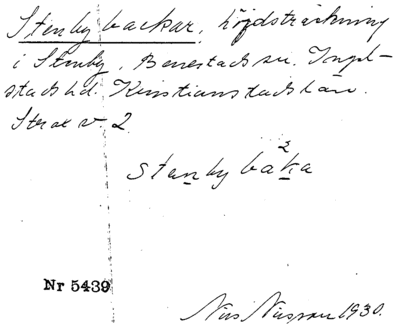 Stenby backar, höjdsträckning
i Stenby, Benestads sn. Ingel-
stads hd. Kristianstads län.
Star v. 2
stanby baka
2
Nr 5439
Nils Nilsson 1930.